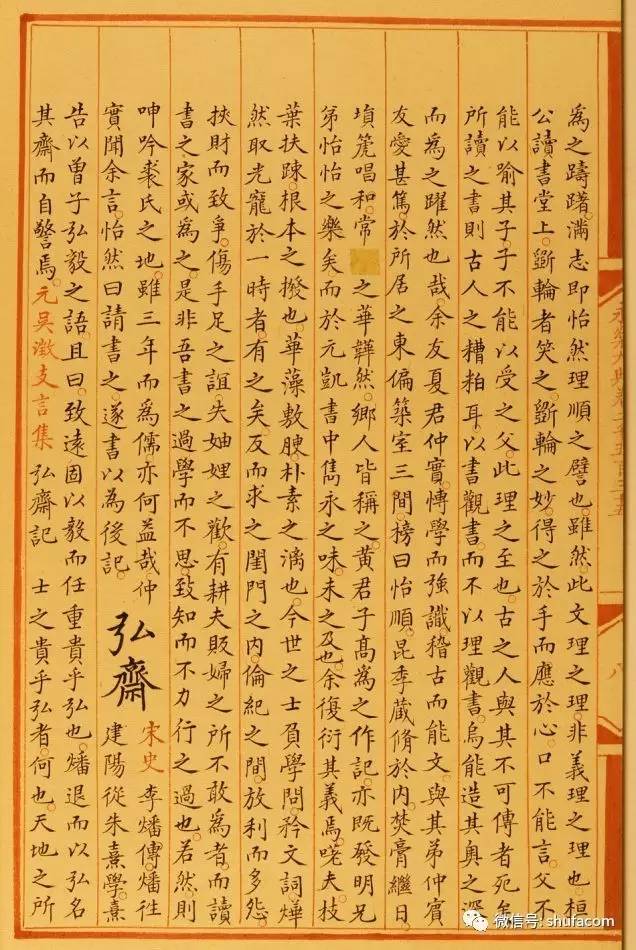 為之躊躇。滿志即怡然理順之譬也。雖然。此文理之理。非義理之理也。桓
公讀書堂上。斵輪者笑之。斵輪之妙。得之於手而應於心。口不能言。父不
能以喻其子。子不能以受之父。此理之至也。古之人與其不可傳者死矣。
所讀之書則古人之糟粕耳。以書觀書。而不以理觀書。烏能造其奥之深
而為之躍然也哉。余友夏君仲實。愽學而強識。稽古而能文。與其弟仲賓
友愛甚篤。於所居之東偏築室三間。榜曰怡順。昆季蔵脩於内。焚膏繼日。
塤箎唱和。常之華韡然。鄉人皆稱之。黄君子髙為之作記。亦既發明兄
弟怡怡之樂矣。而於元凱書中雋永之味。未之及也。余復衍其義焉。嗟夫枝
葉扶踈。根本之撥也。華藻敷腴。朴素之漓也。今世之士。負學問。矜文詞。燁
然取光寵於一時者有之矣。反而求之閨門之内。倫紀之間。放利而多怨。
挾財而致爭。傷手足之誼。失妯娌之歡。有耕夫販婦之所不敢為者。而讀
書之家或為之。是非吾書之過。學而不思。致知而不力行之過也。若然。則
呻吟裘氏之地。雖三年而為儒。亦何益哉。仲
實聞余言。怡然曰。請書之。遂書以為後記。
弘齋
宋史李燔傳。燔徃
建陽從朱熹學。熹
告以曽子弘毅之語。且曰。致遠固以毅。而任重貴乎弘也。燔退而以弘名
其齋而自警焉。元吳澂支言集 弘齋記 士之貴乎弘者。何也。天地之所
永樂大典卷二千五百三十五
八
微信号: shufacom